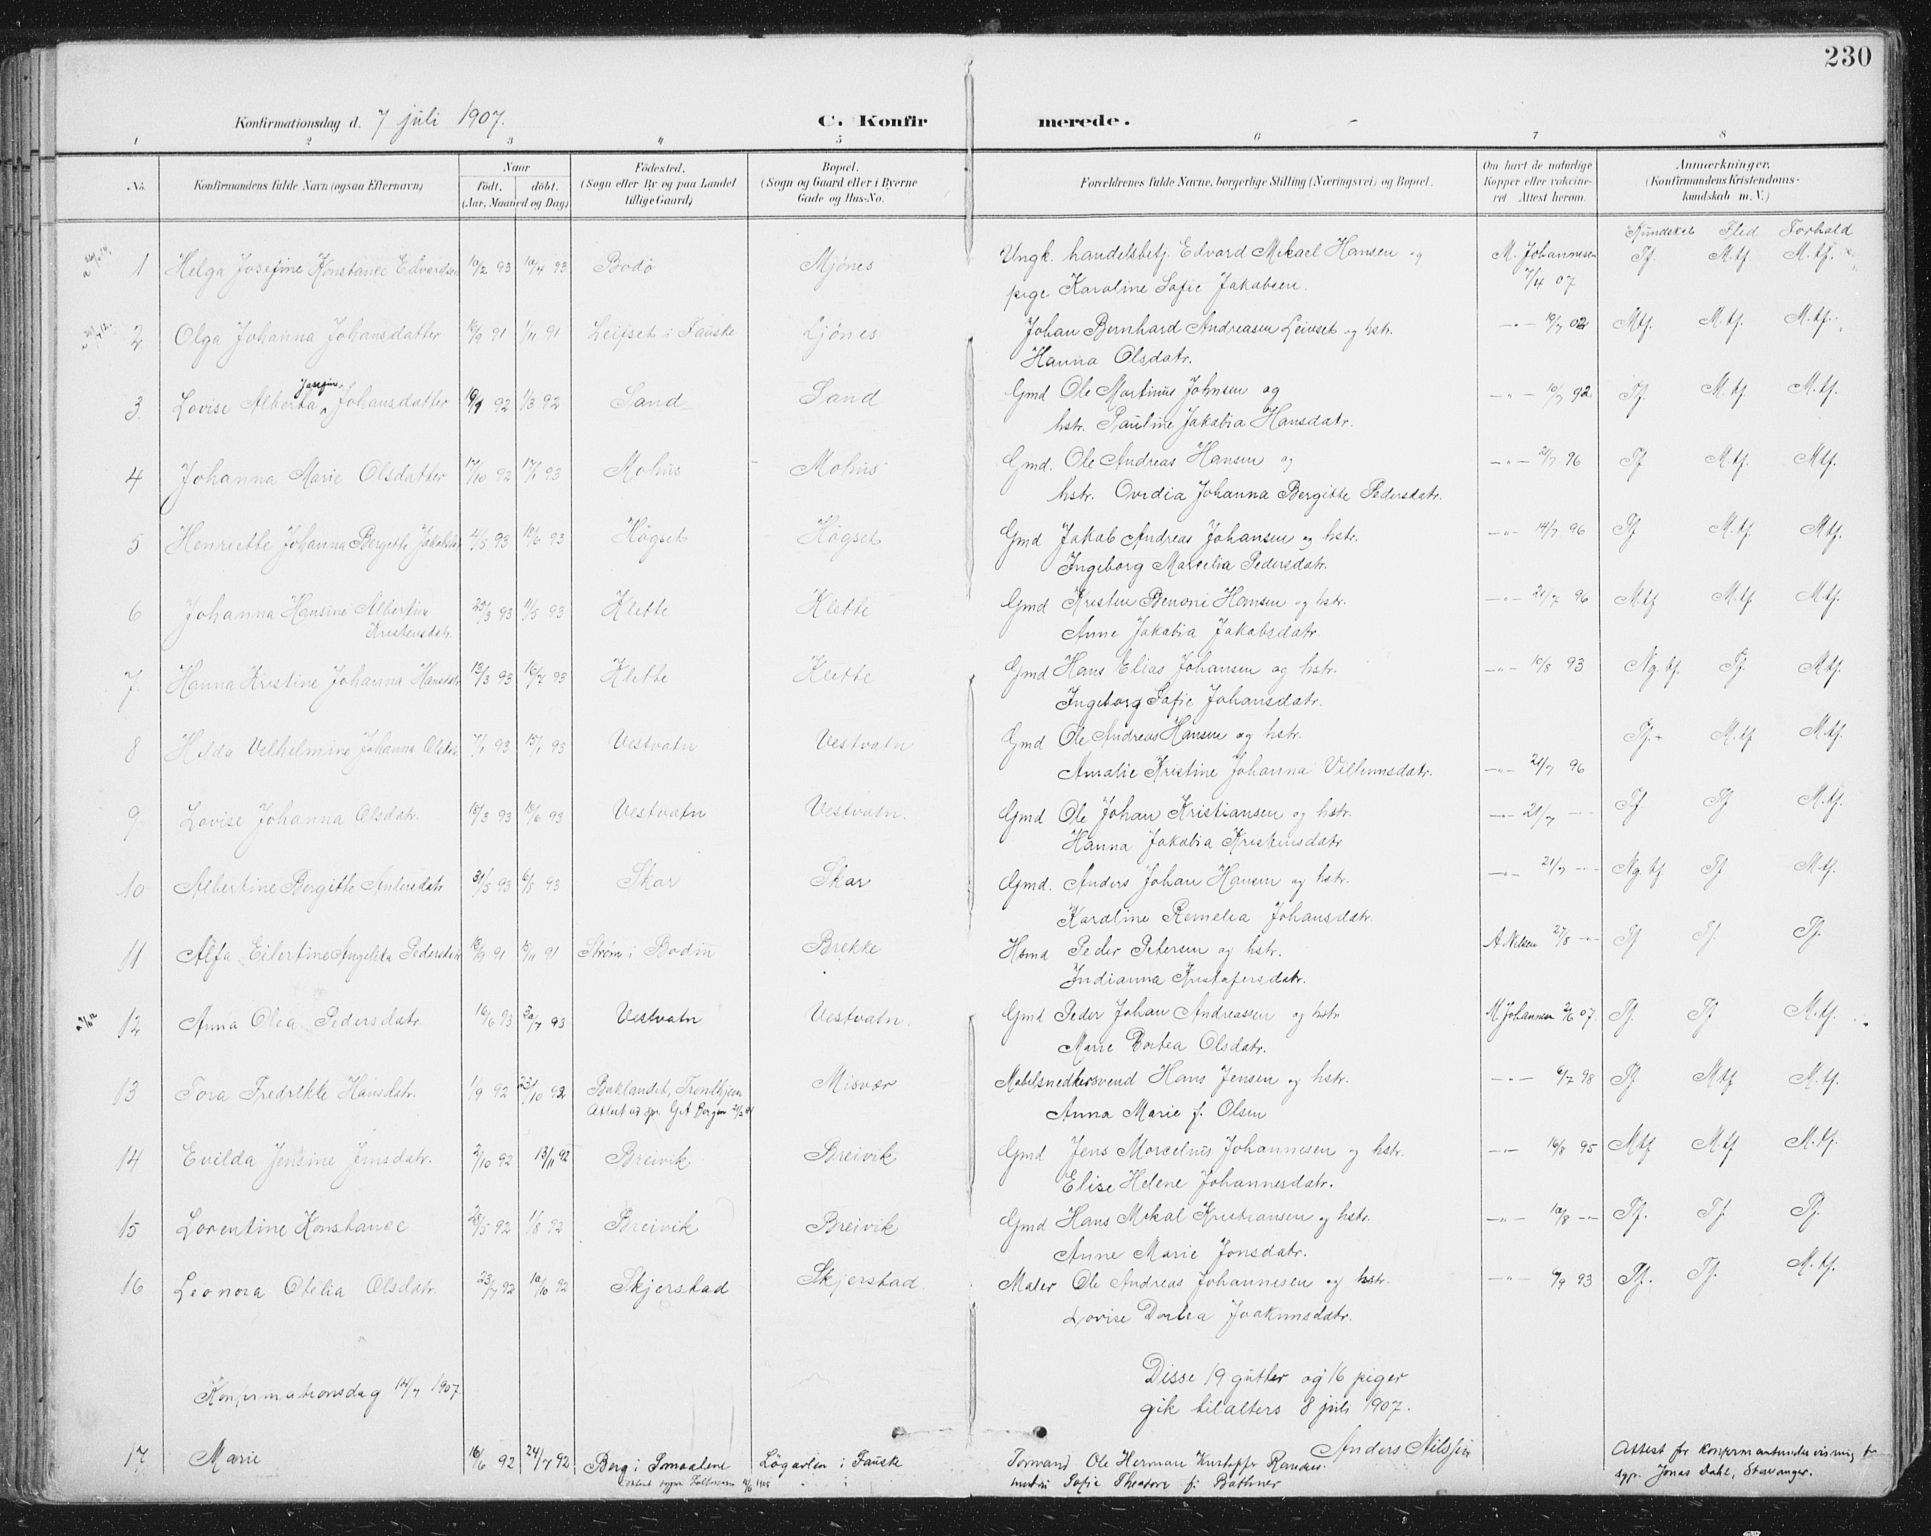 230
Konfirmationsdag d. 7 juli 1907.
C. Konfir merede.
1 2 3 4 5 6 7 8
No. Konfirmandens fulde Navn (ogsaa Efternavn)
Naar født. døbt. (Aar, Maaned og Dag)
Fødested. (Sogn eller By og paa Landet tillige Gaard)
Bopæl. (Sogn og Gaard eller i Byerne Gade og Hus-No.
Forældrenes fulde Navne, borgerlige Stilling (Næringsvei) og Bopæl.
Om havt de naturlige Kopper eller vakcineret. Attest herom.
Anmærkninger. (Konfirmandens Kristendomskundskab m. V.)
Kundskab Flid Forhold
1 Helga Josefine Konstance Edvardsen 10/2 93 10/4 93 Bodö Mjönes Ungk. handelsbetj. Edvard Mikael Hansen og M. Johannesen Tf. M.tf. M.tf.
pige Karoline Sofie Jakobsen. 7/4 07
2 Olga Johanna Johansdatter 10/9 91 1/11 91 Leifset i Fauske Ljönes Johan Bernhard Andreasen Leivset og hstr. -"- 10/7 02 Mtf. M.tf. M.tf.
Hanna Olsdatr.
3 Lovise Alberta Josefine Johansdatter 92 1/3 92 Sand Sand Gmd Ole Martinus Johnsen og -"- 10/7 92 Tf. M.tf. M.tf.
hstr. Pauline Jakobia Hansdatr.
4 Johanna Marie Olsdatter 17/10 92 17/1 93 Mohus Mohus Gmd. Ole Andreas Hansen og -"- 21/7 96 Tf M.tf. Mtf.
hstr. Ovidia Johanna Bergitte Pedersdatr.
5 Henriette Johanna Bergitte Jakobsd 4/5 93 18/6 93 Högset Högset Gmd Jakob Andreas Johansen og hstr. -"- 14/7 96 Tf M.tf. Mtf.
Ingeborg Marcelia Pedersdatr.
6 Johanna Hansine Albertine 25/3 93 11/5 93 Klette Klette Gmd Kristen Benoni Hansen og hstr. -"- 21/7 96 M.tf M.tf M.tf.
Kristensdatr. Anne Jakobia Jakobsdatr.
7 Hanna Kristine Johanna Hansdatr 13/3 93 16/7 93 Klette Klette Gmd Hans Elias Johansen og hstr. -"- 10/8 93 Ng.tf. Tf. Mtf.
Ingeborg Sofie Johansdatr.
8 Hilda Vilhelmine Johanna Olsdtr 7/1 93 15/1 93 Vestvatn Vestvatn Gmd Ole Andreas Hansen og hstr. Tf.- M.tf M.tf.
Amalie Kristine Johanna Vilhumsdatr. -"- 21/7 96
9 Lovise Johanna Olsdatr. 18/3 93 18/6 93 Vestvatn Vestvatn. Gmd Ole Johan Kristiansen og hstr. -"- 21/7 -"- Tf Tf M.tf.
Hanna Jakobia Kristensdatr
10 Albertine Bergitte Andersdatr 31/5 93 6/8 93 Skar Skar Gmd. Anders Johan Hansen og hstr. -"- 21/7 -"- Ng.tf. Tf M.tf.
Karoline Remelia Johansdatr.
11 Alfa Eilertine Angelika Pedersdatr 18/9 91 15/11 91 Ström i Bodin Brekke Hsmd Peder Petersen og hstr. A Nilsen 27/8 -"- Tf Tf Tf.
Indianna Kristofersdatr.
12 Anna Olea Pedersdatr 16/6 93 30/7 93 Vestvatn Vestvatn. Gmd Peder Johan Andreassen og hstr M Johannesen 2/6 07. Tf. Tf M.tf.
Marie Dortea Olsdatr.
13 Tora Fredrikke Hansdatr. 1/9 92 23/10 92 Baklandet, Trondhjem Misvær Möbelsnedkersvend Hans Jensen og hstr. -"- 6/7 98 Tf Mtf M.tf.
Anna Marie f. Olsen
14 Evilda Jensine Jensdatr. 2/10 92 13/11 92 Breivik Breivik Gmd Jens Morcelius Johannesen og hstr. -"- 16/8 95 Mtf M.tf M.tf.
Elise Helene Johannesdatr.
15 Lorentine Konstance 28/5 92 1/8 92 Breivik Breivik Gmd Hans Mikal Kristiansen og hstr. -"- 10/8 -"- Tf. Tf. Tf.
Anne Marie Jonsdatr.
16 Leonora Otelia Olsdatr. 23/7 92 10/10 92 Skjerstad Skjerstad. Maler Ole Andreas Johannesen og hstr. -"- 9/9 93 Tf. Tf. M.tf.
Lovise Dortea Joakimsdatr.
Disse 19 gutter og 16 piger
Konfirmationsdag 14/7 1907. gik til alters 8 juli 1907.
Anders Nilssen
17 Marie 16/6 92 24/7 92 Berg i Smaalene Løgavlen i Fauske Formand Ole Herman Kristoffer Rendes. Attest for konfirmantundervisning fr
Sofie Theodore f. Bathner sgpr. Jonas Dahl, Stavanger.